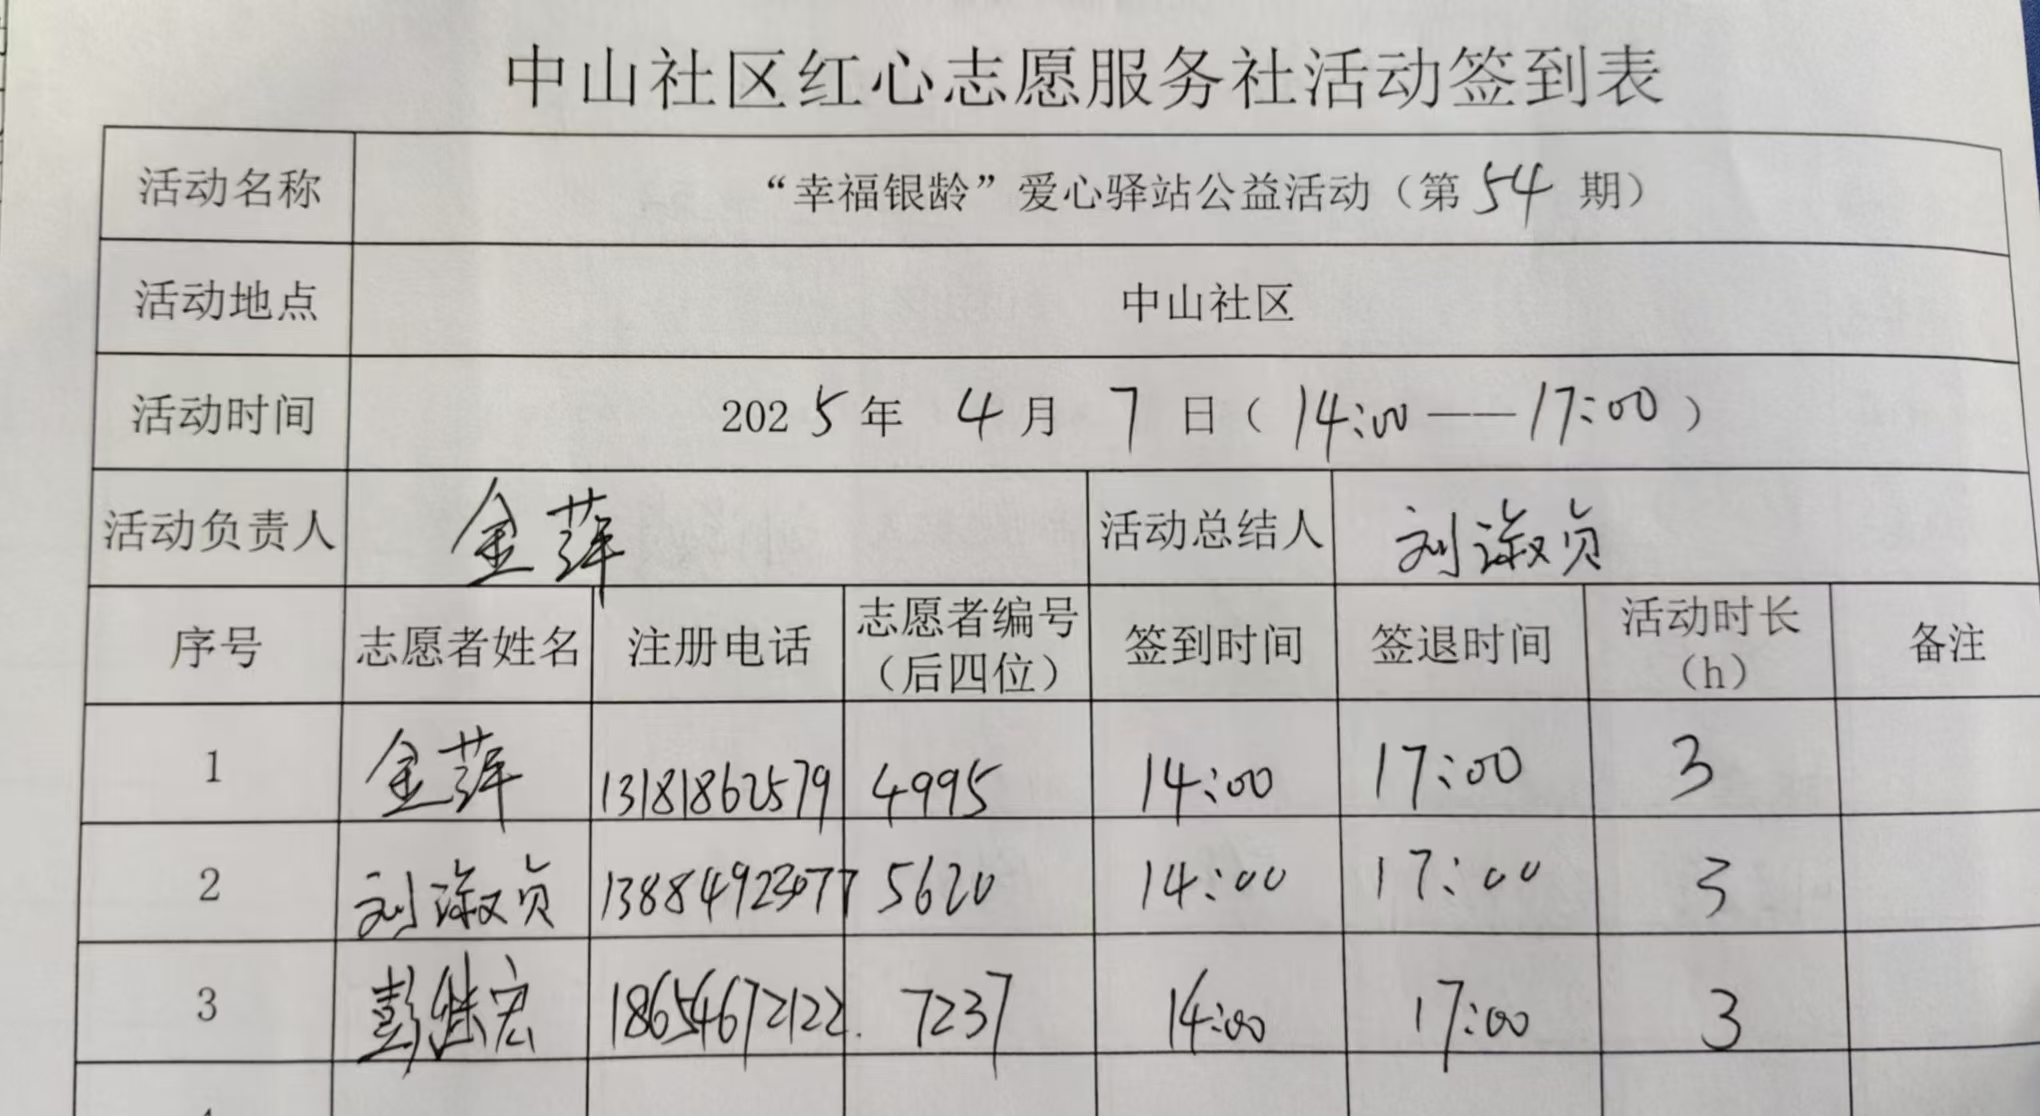 中山社区红心志愿服务社活动签到表
活动名称 “幸福银龄”爱心驿站公益活动（第 54 期）
活动地点 中山社区
活动时间 2025年 4月 7日（14:00——17:00）
活动负责人 金萍 活动总结人 刘淑贞
序号 志愿者姓名 注册电话 志愿者编号（后四位） 签到时间 签退时间 活动时长（h） 备注
1 金萍 13181862579 4995 14:00 17:00 3
2 刘淑贞 13884923077 5620 14:00 17:00 3
3 彭继宏 18654672122. 7237 14:00 17:00 3